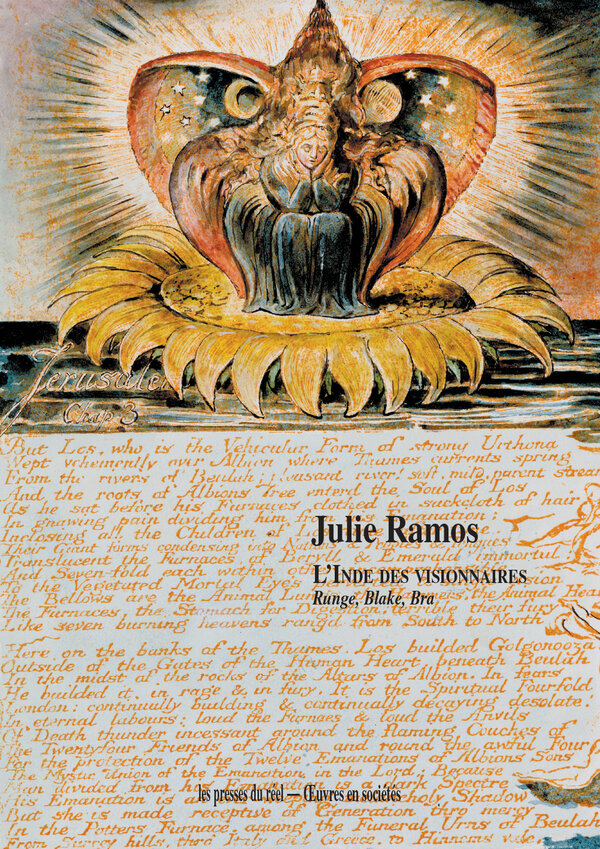 Jerusalem
Chap 3
But Los, who is the Vehicular Form of strong Urthona
Wept vehemently over Albion where Thames currents spring
From the rivers of Beulah; pleasant river! soft, mild, parent stream
And the roots of Albions Tree enterd the Soul of Los
As he sat before his Furnaces clothed in sackcloth of hair
In gnawing pain dividing him from his Emanation;
Inclosing all the Children
Their Giant forms condensing into Nations & Peoples &
Translucent the Furnaces of & Emerald immortal
And Seven-fold each within other
To the Vegetated Mortal Eyes
The Bellows are the Animal Lungs the Animal Heart
The Furnaces, the Stomach for Digestion; terrible their fury
Like seven burning heavens rang'd from South to North
Julie Ramos
L'Inde des visionnaires
Runge, Blake, Bra
Here on the banks of the Thames, Los builded Golgonooza
Outside of the Gates of the Human Heart, beneath Beulah
In the midst of the rocks of the Altars of Albion. In fears
He builded it, in rage & in fury. It is the Spiritual Fourfold
London: continually building & continually decaying desolate:
In eternal labours: loud the Furnaces & loud the Anvils
Of Death thunder incessant around the flaming Couches of
The Twentyfour Friends of Albion and round the awful Four
For the protection of the Twelve Emanations of Albions Sons
The Mystic Union of the Emanation in the Lord; Because
Man divided from his is a Dark Spectre
His Emanation is an Shadow
But she is made receptive of Generation thro mercy
In the Potters Furnace, among the Funeral Urns of Beulah
From Surrey hills, thro Italy and Greece, to Hinnoms vale.
les presses du réel — Œuvres en sociétés